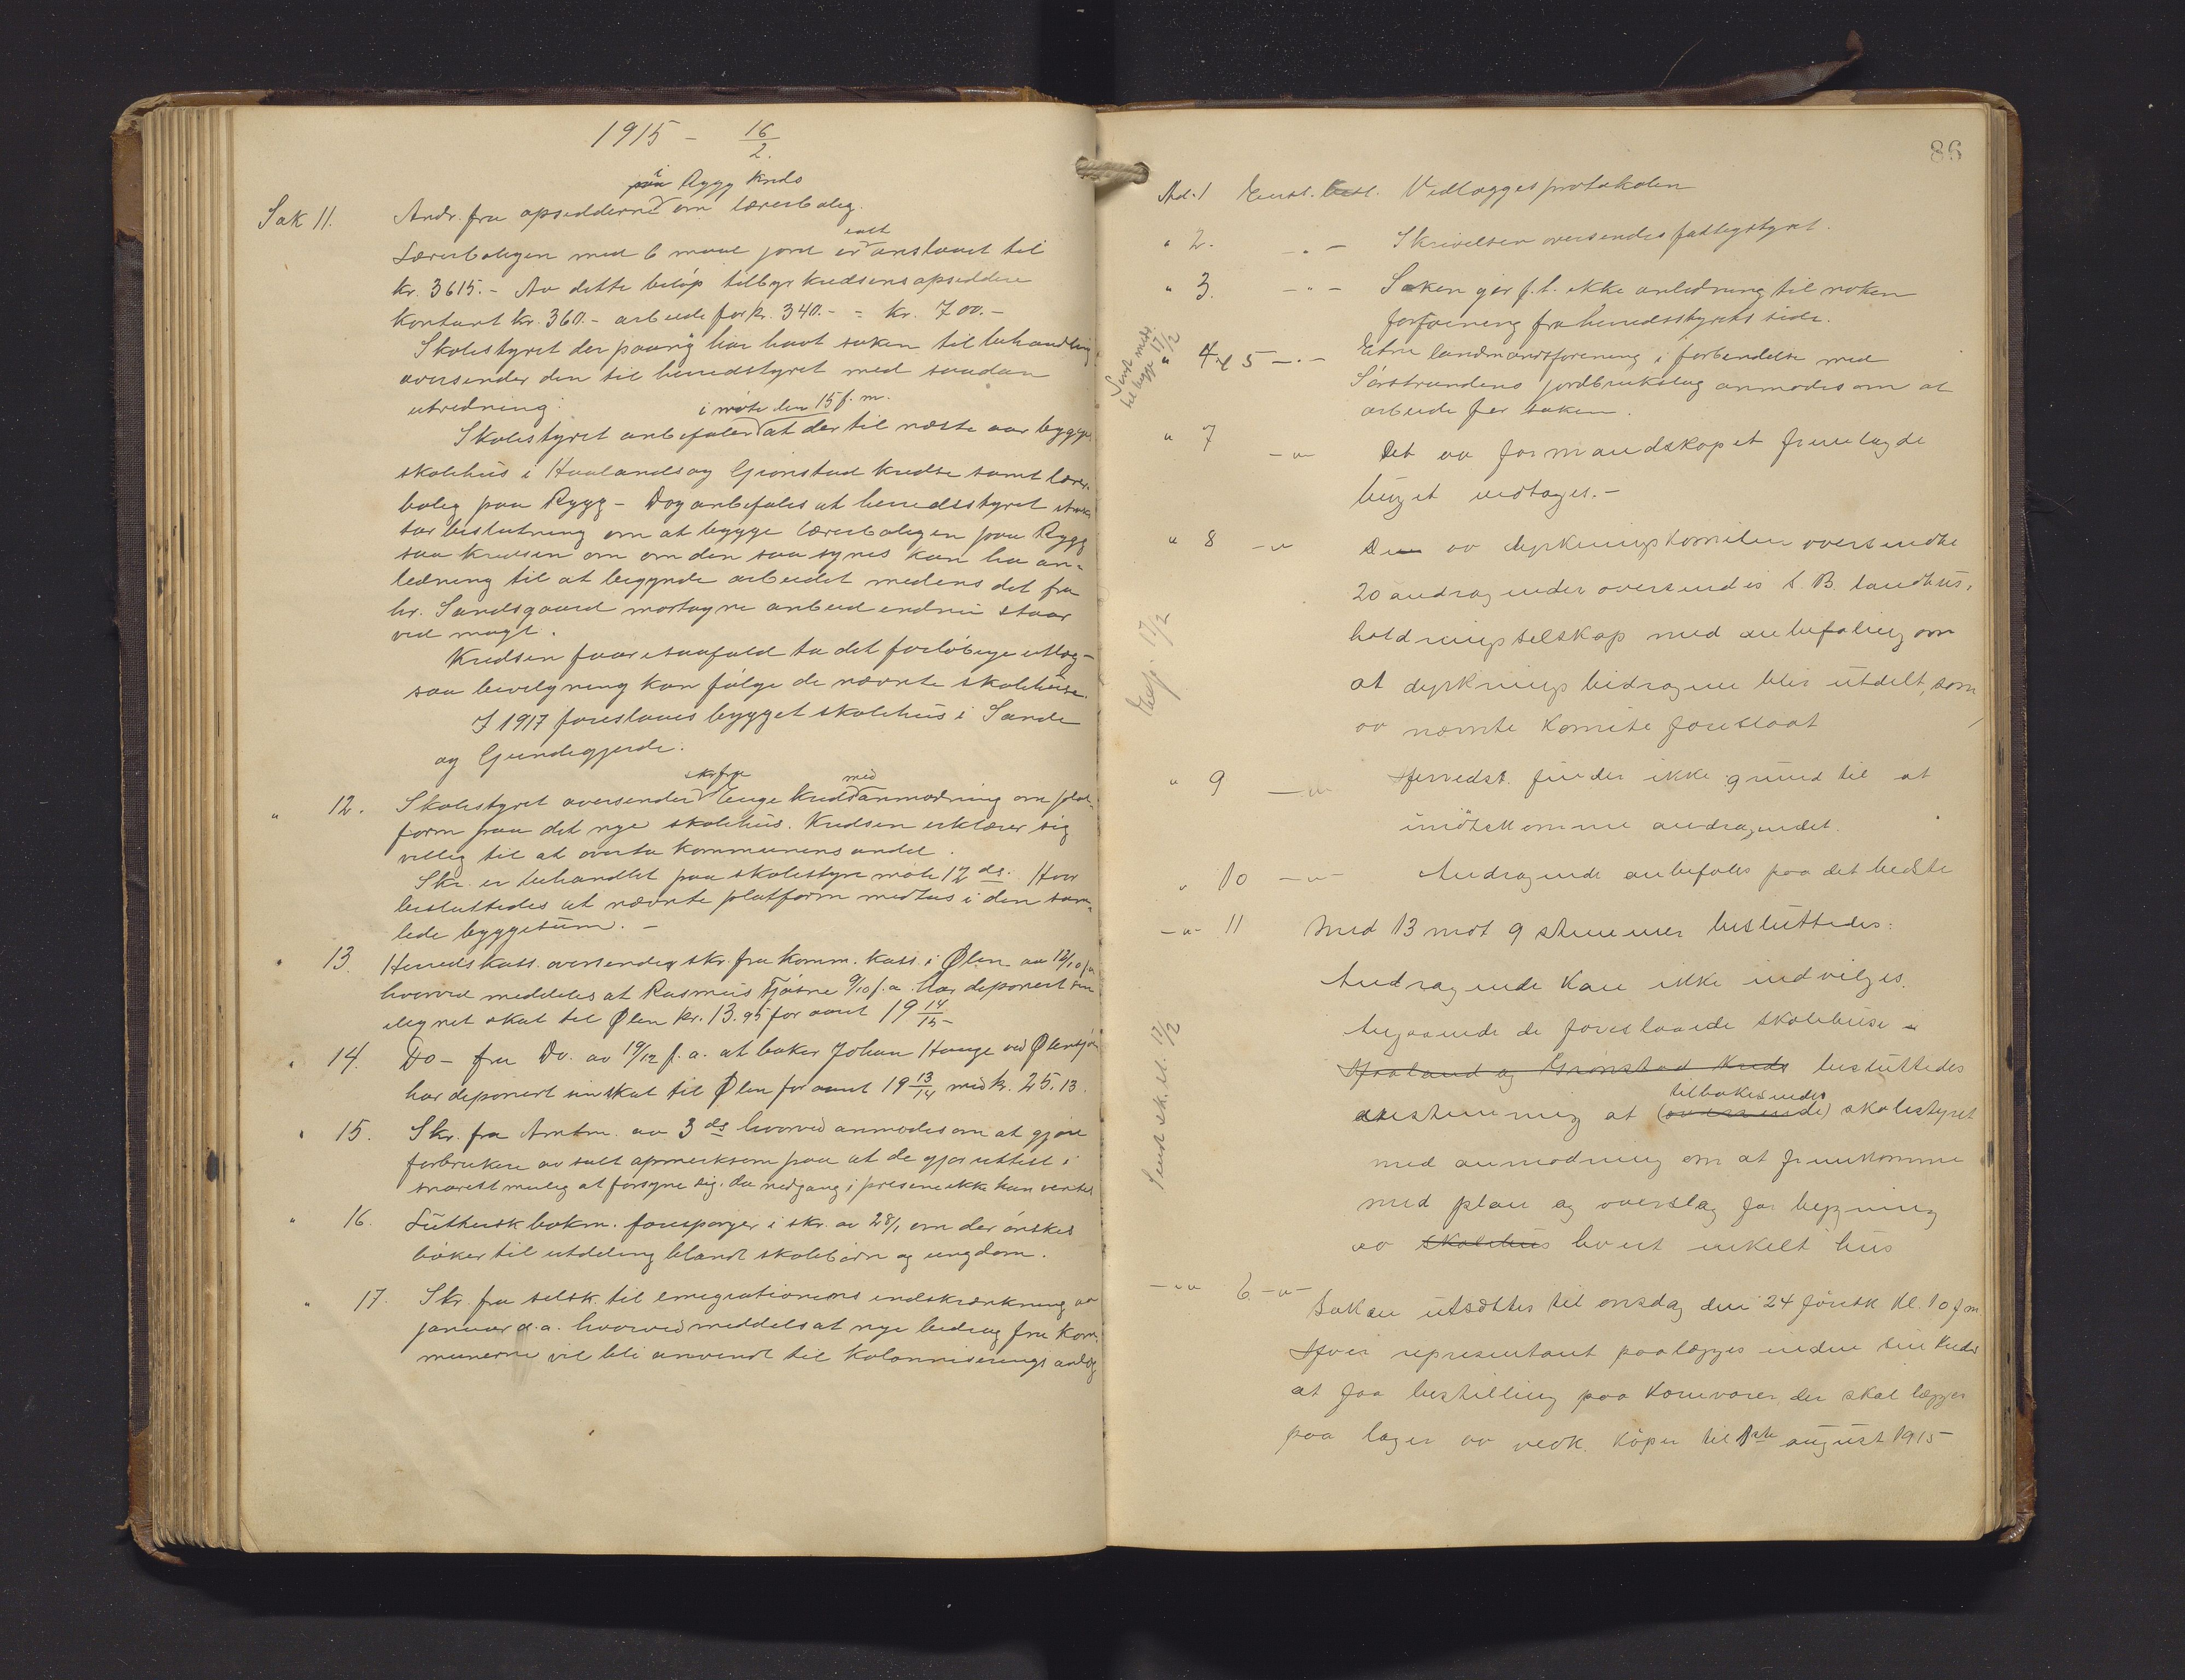 1915 - 16/2.
paa i Rygg Krds
Sak 11. Andr. fra opsidderne om lærerbolig.
Lærerboligen med 6 maal jord er ialt anslaaet til
kr. 3615.- Av dette beløp tilbyr kredsens opsiddere
kontant kr. 360.- arbeide for kr. 340.- = kr. 700.-
Skolestyret der paany har havt saken til behandling
oversender den til herredstyret med saadan
utredning:
Skolestyret anbefaler i møte den 15 f. m. at der til næste aar bygges
skolehus i Haaland og Grønstad kredse samt lærer-
bolig paa Rygg - Dog anbefales at herredsstyret straks
tar beslutning om at bygge lærerboligen paa Rygg
saa kredsen om om den saa synes kan ha an-
ledning til at begynde arbeidet medens det fra
hr. Sandsgaard mottagne anbud endnu staar
ved magt.
Kredsen faar isaafald ta det forløbige utlæg -
saa bevilgning kan følge de nævnte skolehuse.
I 1917 foreslaaes bygget skolehus i Sande
og Gjerdegjerde.
" 12. Skolestyret oversender skr. fra Enge kreds med anmodning om plat-
form paa det nye skolehus. Kredsen erklærer sig
villig til at overta kommunens andel.
Skr. er behandlet paa skolestyremøte 12 ds. Hvor
besluttedes at nævnte platform medtas i den sam-
lede byggesum. -
" 13. Herredskass. oversender skr. fra komm. kass. i Ølen av 12/10 f.a.
hvorved meddeles at Rasmus Fjøsne 9/10 f.a. har deponert sin
ilignet skat til Ølen kr. 13.95 for aaret 19 14/15 -
" 14. Do - fra Do. av 19/12 f. a. at baker Johan Hauge ved Ølensjøen
har deponert sin skat til Ølen for aaret 19 13/14 med kr. 25.13.
" 15. Skr. fra Amtm. av 3 ds hvorved anmodes om at gjøre
forbrukere av salt opmerksom paa at de gjør rettest i
snarest mulig at forsyne sig, da nedgang i prisene ikke kan ventes
" 16. Luthersk bokm. forespørger i skr. av 28/1 om der ønskes
bøker til utdeling blandt skolebørn og ungdom.
" 17. Skr. fra selsk. til emigrationens indskrænkning av
januar d.a. hvorved meddeles at nye bidrag fra kom-
munerne vil bli anvendt til Kolonniserings anlæg
86
Ad. 1 Enst. besl. Vedlægges protokolen
" 2. - " - Skrivelsen oversendes fattigstyret.
" 3. - " - Saken gir f.t. ikke anledning til noken
forføining fra herredsstyrets side.
" 4 & 5 - " - Etne landmandsforening i forbindelse med
Sørstrandens jordbrukslag anmodes om at
arbeide for saken.
Sendt medd. til begge 17/2
" 7 - " - Det av formandskapet fremlagde
budget vedtages. -
" 8 - " De av dyrkningskomiteen oversendte
20 andragender oversendes S. B. landhus-
holdningsselskap med anbefaling om
at dyrkningsbidragene blir utdelt, som
av nævnte Komite foreslaat
Eksp. 17/2
" 9 - " Herredst. finder ikke grund til at
imøtekomme andragendet.
" 10 - " - Andragende anbefales paa det bedste
- " - 11 Med 13 mot 9 stemmer besluttedes:
Andragende kan ikke indvilges.
Angaaende de foreslaaede skolehuse i
Haaland og Grønstad kreds besluttedes
enstemmig at (oversende) tilbakesendes skolestyret
med anmodning om at fremkomme
med plan og overslag for bygning
av skolehus hvert enkelt hus
Sendt sk.st. 17/2
- " " 6 - " - Saken utsættes til onsdag den 24 førstk kl. 10 f m.
Hver representant paalægges inden sin kreds
at faa bestilling paa Kornvarer, der skal lægges
paa lager av vedk. kjøper til 1ste august 1915